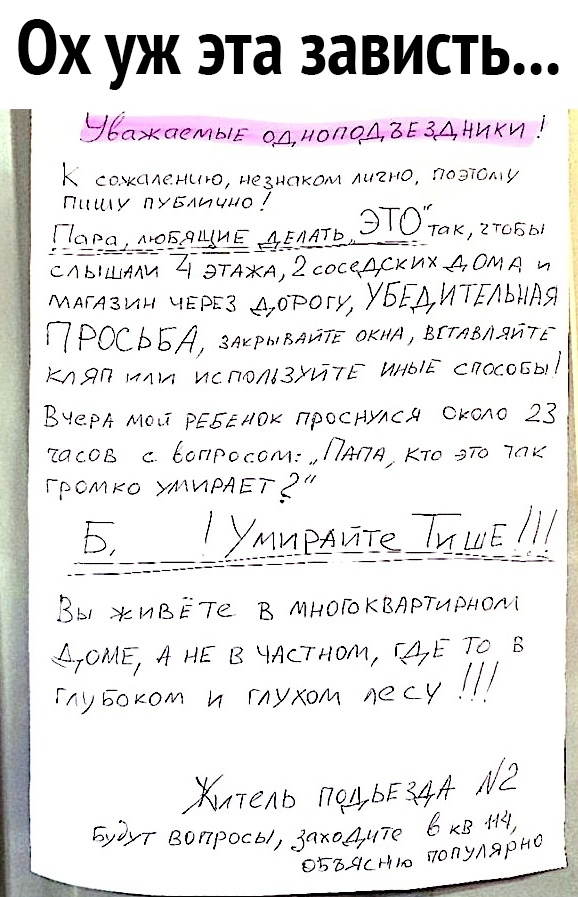 Ох уж эта зависть...
Уважаемые одноподъездники!
К сожалению, незнаком лично, поэтому
пишу публично!
Пара, любящие делать „ЭТО" так, чтобы
слышали 4 этажа, 2 соседских дома и
магазин через дорогу, УБЕДИТЕЛЬНАЯ
ПРОСЬБА, закрывайте окна, вставляйте
кляп или используйте иные способы!
Вчера мой ребенок проснулся около 23
часов с вопросом: „Папа, кто это так
громко умирает?"
Б, ! Умирайте Тише!!!
Вы живёте в многоквартирном
доме, а не в частном, где то в
глубоком и глухом лесу!!!
Житель подьезда №2
Будут вопросы, заходите в кв 114,
объясню популярно